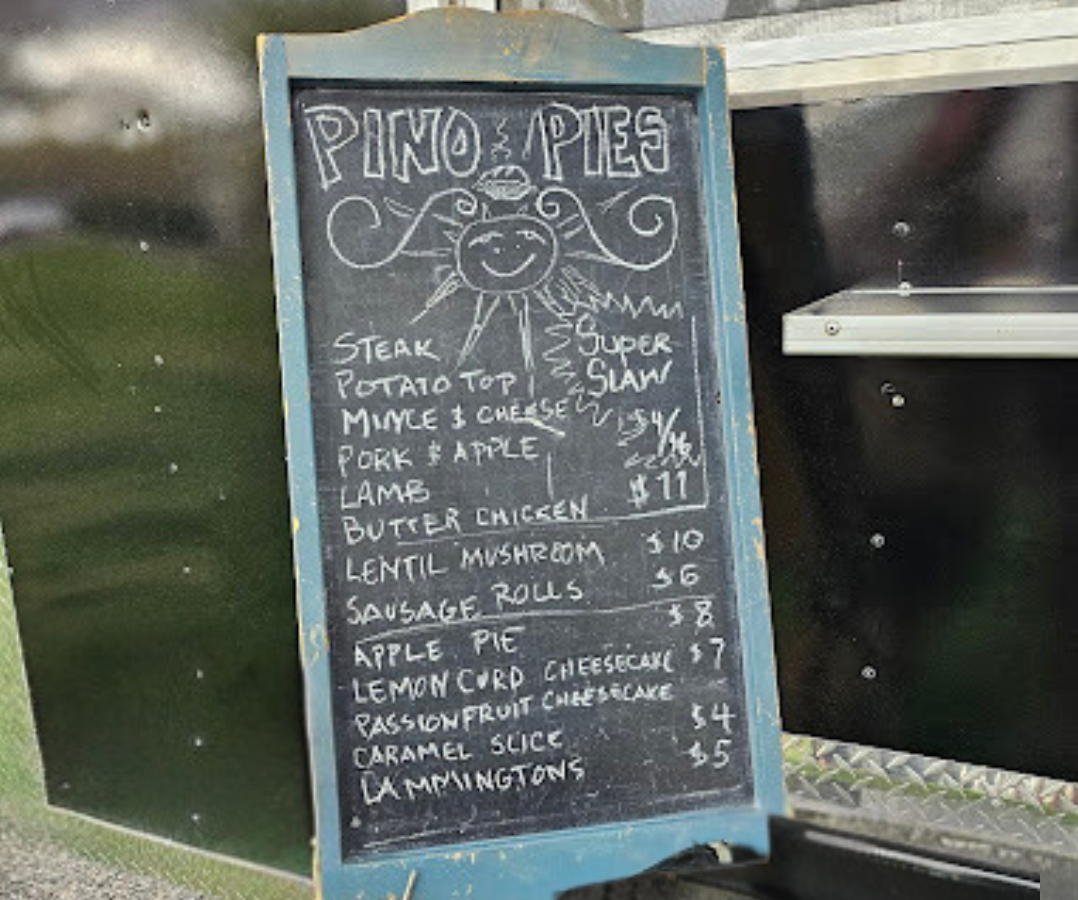 PINO PIES
STEAK
POTATO TOP
MINCE & CHEESE
PORK & APPLE
LAMB
BUTTER CHICKEN $11
SUPER
SLAW
$4/
LENTIL MUSHROOM $10
SAUSAGE ROLLS $6
APPLE PIE $8
LEMON CURD CHEESECAKE $7
PASSIONFRUIT CHEESECAKE
CARAMEL SLICE $4
LAMMINGTONS $5